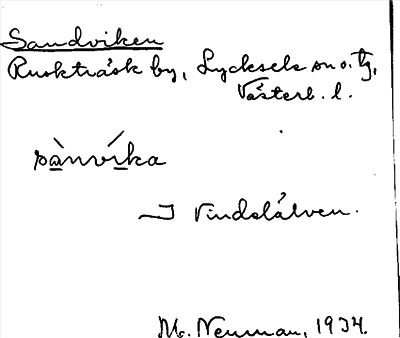 Sandviken
Rusksträsk by, Lycksele sn o. tg,
Västerb. l.
sànvíka
I Vindelälven.
M. Neuman, 1934.